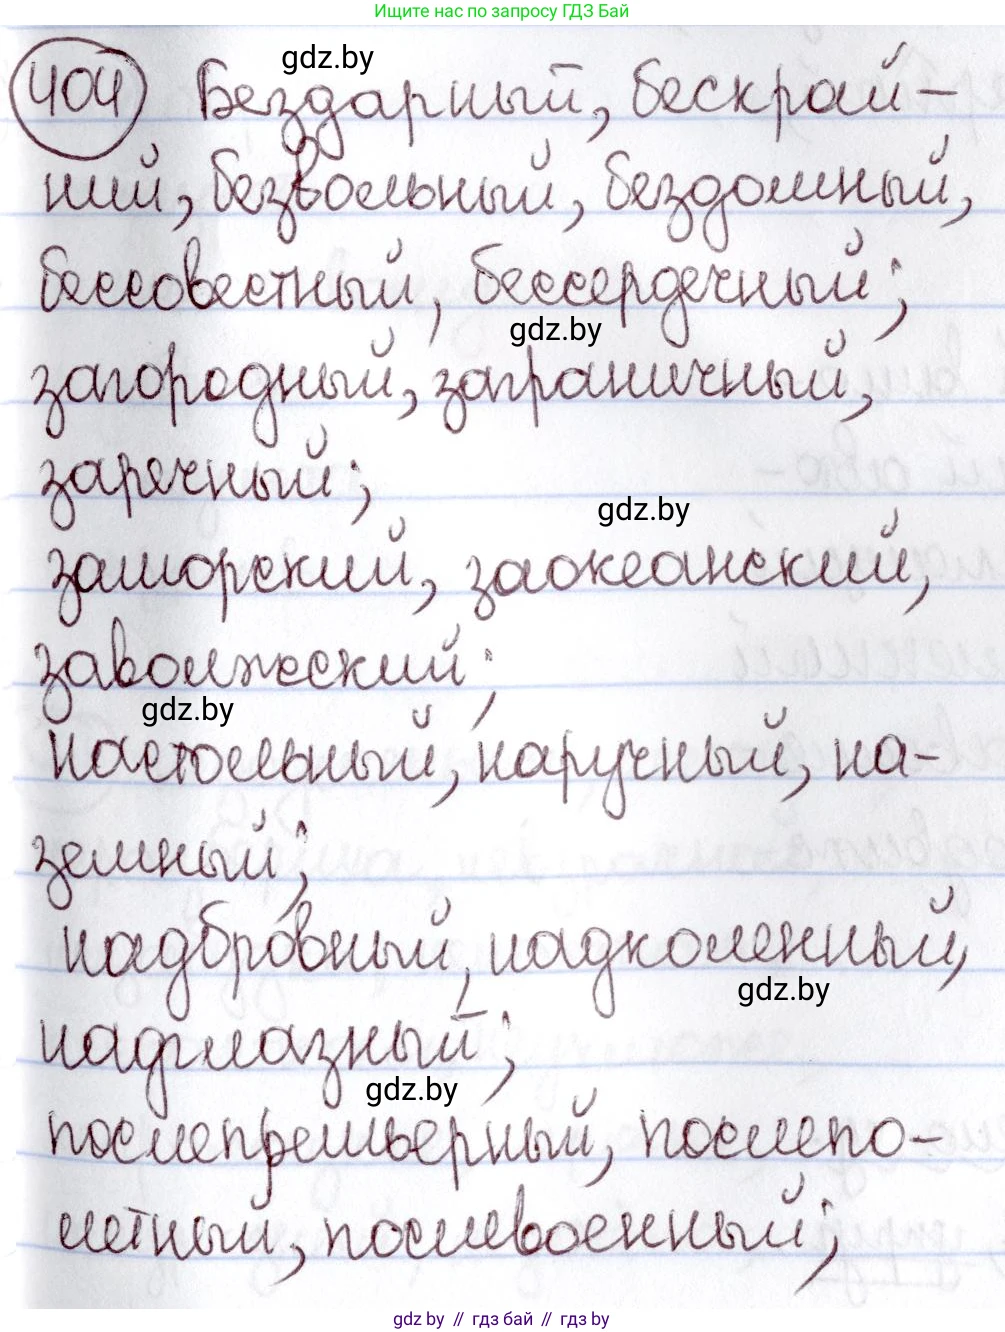 Ищите нас по запросу ГДЗ Бай
gdz.by
404 Бездарный, бескрай-
ний, безвольный, бездомный,
бессовестный, бессердечный;
gdz.by
загородный, заграничный,
заречный;
gdz.by
заморский, заокеанский,
заволжский;
gdz.by
настольный, наручный, на-
земный;
надбровный, надколенный,
gdz.by
надглазный;
gdz.by
послепремьерный, послепо-
летный, послевоенный;
gdz.by // гдз бай // гдз by